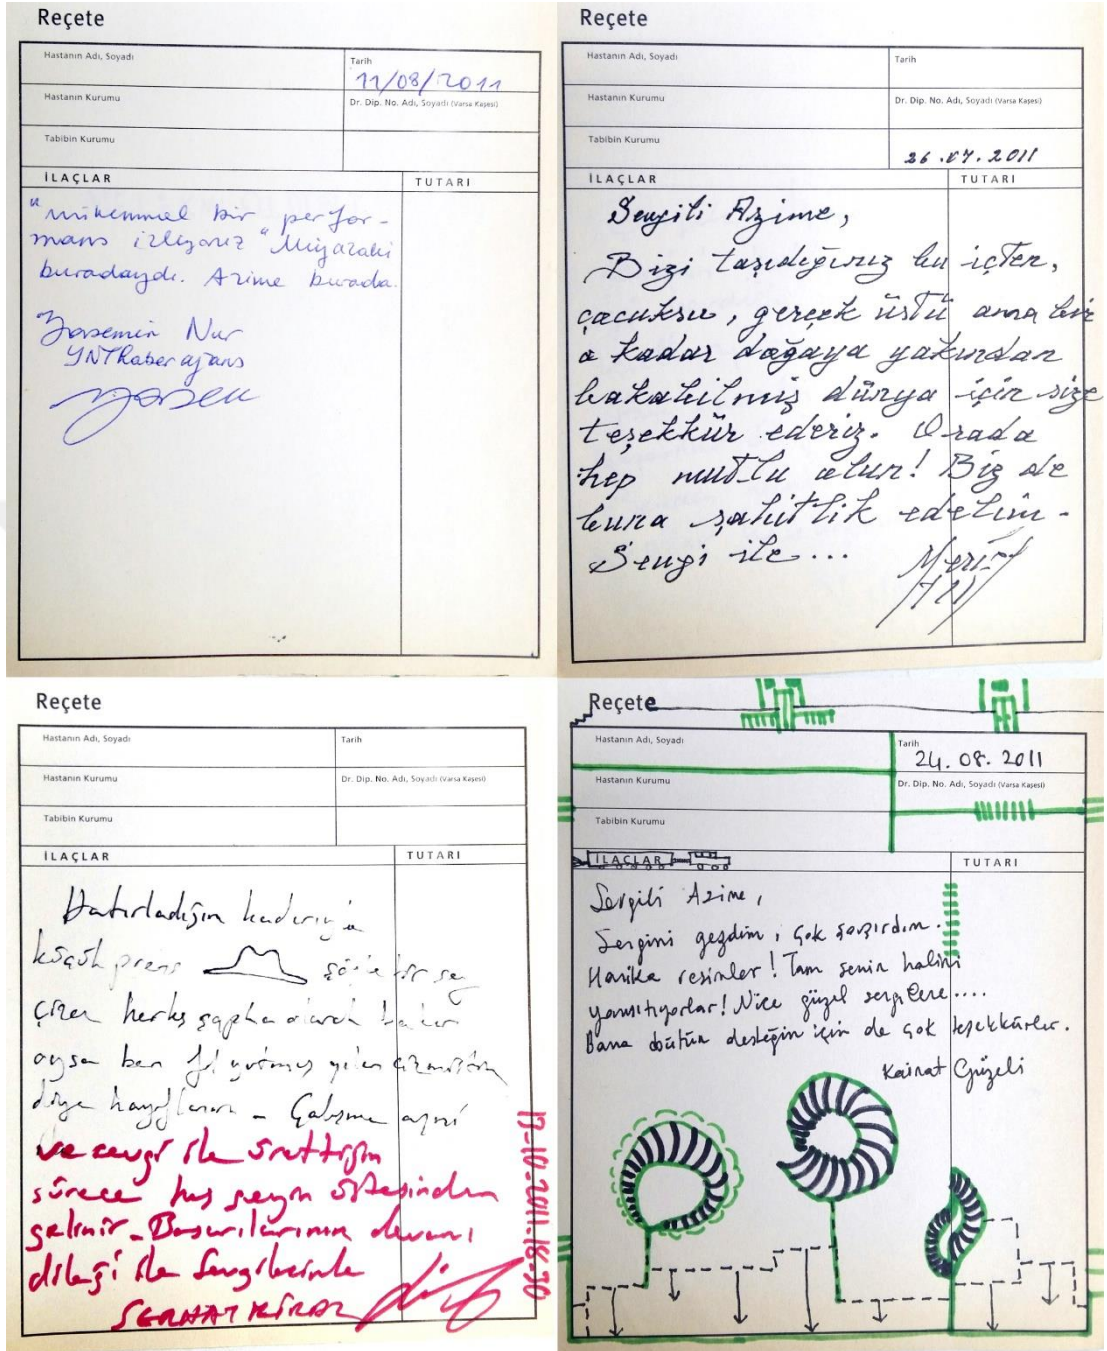 Reçete
Hastanın Adı, Soyadı
Tarih
11/08/2011
Hastanın Kurumu
Dr. Dip. No. Adı, Soyadı (Varsa Kaşesi)
Tabibin Kurumu
İLAÇLAR
TUTARI
"mükemmel bir perfor-
mans izliyoruz" Miyazaki
buradaydı. Azime burada.
Yasemin Nur
YNThaber ajans
Reçete
Hastanın Adı, Soyadı
Tarih
Hastanın Kurumu
Dr. Dip. No. Adı, Soyadı (Varsa Kaşesi)
Tabibin Kurumu
26.07.2011
İLAÇLAR
TUTARI
Sevgili Azime,
Bizi taşıdığınız bu içten,
çocuksu, gerçek üstü ama bir
o kadar doğaya yakından
bakabilmiş dünya için size
teşekkür ederiz. Orada
hep mutlu olun! Biz de
buna şahitlik edelim.
Sevgi ile...
Reçete
Hastanın Adı, Soyadı
Tarih
Hastanın Kurumu
Dr. Dip. No. Adı, Soyadı (Varsa Kaşesi)
Tabibin Kurumu
İLAÇLAR
TUTARI
Hatırladığım kadarıyla
küçük prens şöyle bir şey
çizer herkes şapka olarak bakar
oysa ben fil yutmuş yılan çizmiştim
diye hayıflanır - Çalışma azmi
ve sevgi ile ürettiğin
sürece her şeyin üstesinden
gelinir - Başarılarının devamı
dileği ile Sevgilerimle
SERHAT KİRAZ
17-10-2011-16-30
Reçete
Hastanın Adı, Soyadı
Tarih
24.08.2011
Hastanın Kurumu
Dr. Dip. No. Adı, Soyadı (Varsa Kaşesi)
Tabibin Kurumu
İLAÇLAR
TUTARI
Sevgili Azime,
Sergini gezdim, çok şaşırdım.
Harika resimler! Tam senin halini
yansıtıyorlar! Nice güzel sergilere....
Bana bütün desteğin için de çok teşekkürler.
Kainat Güzeli